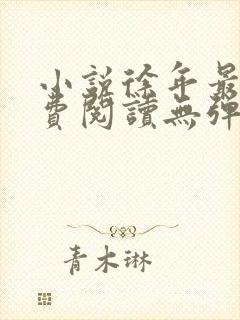 小説徐年最
費閱讀無彈
青木琳